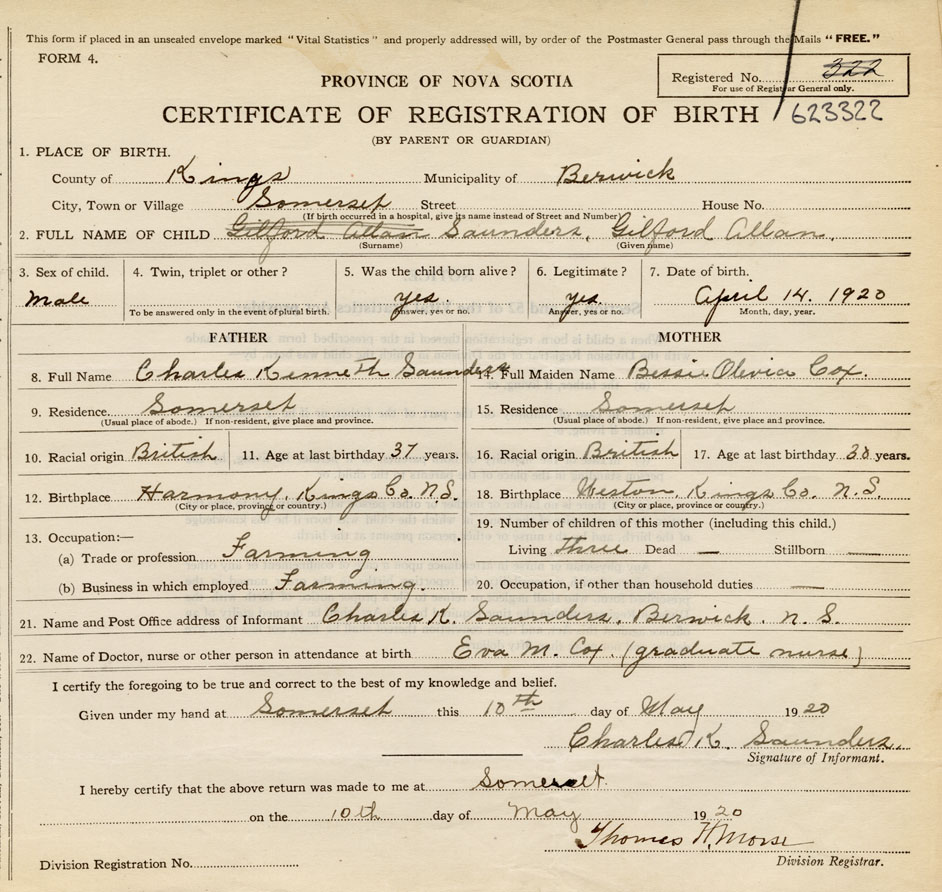 This form if placed in an unsealed envelope marked "Vital Statistics" and properly addressed will, by order of the Postmaster General pass through the Mails "FREE."
FORM 4.
PROVINCE OF NOVA SCOTIA
Registered No. 322
For use of Registrar General only.
CERTIFICATE OF REGISTRATION OF BIRTH 623322
(BY PARENT OR GUARDIAN)
1. PLACE OF BIRTH.
County of Kings Municipality of Berwick
City, Town or Village Somerset Street House No.
(If birth occurred in a hospital, give its name instead of Street and Number)
2. FULL NAME OF CHILD Gilford Allan Saunders, Gilford Allan.
(Surname) (Given name)
3. Sex of child. 4. Twin, triplet or other? 5. Was the child born alive? 6. Legitimate? 7. Date of birth.
Male yes. yes. April 14. 1920
To be answered only in the event of plural birth. Answer, yes or no. Answer, yes or no. Month, day, year.
FATHER MOTHER
8. Full Name Charles Kenneth Saunders 14. Full Maiden Name Bessie Olivia Cox.
9. Residence. Somerset 15. Residence Somerset
(Usual place of abode.) If non-resident, give place and province. (Usual place of abode.) If non-resident, give place and province.
10. Racial origin British 11. Age at last birthday 37 years. 16. Racial origin British 17. Age at last birthday years.
12. Birthplace Harmony, Kings Co. N.S. 18. Birthplace Weston, Kings Co. N.S.
(City or place, province or country.) (City or place, province or country.)
13. Occupation:— 19. Number of children of this mother (including this child.)
(a) Trade or profession Farming Living three Dead — Stillborn —
(b) Business in which employed Farming. 20. Occupation, if other than household duties —
21. Name and Post Office address of Informant Charles K. Saunders, Berwick, N. S.
22. Name of Doctor, nurse or other person in attendance at birth Eva M. Cox. (graduate nurse)
I certify the foregoing to be true and correct to the best of my knowledge and belief.
Given under my hand at Somerset this 10th day of May 1920
Charles K. Saunders.
Signature of Informant.
I hereby certify that the above return was made to me at Somerset.
on the 10th day of May 1920
Thomas H. Morse
Division Registration No. Division Registrar.